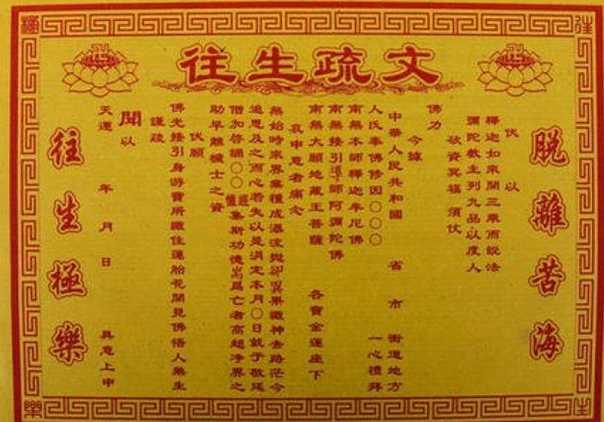 往生疏文
脫離苦海
伏以
釋迦如來開三乘而說法
彌陀教主列九品以度人
欲資冥福須仗
佛力
今據
中華人民共和國 省 市 街道地方
人氏奉佛修因○○○ 一心禮拜
南無本師釋迦牟尼佛
南無接引導師阿彌陀佛
南無大願地藏王菩薩 各寶金蓮座下
哀申意者痛念
無始時來界業種成瀑流 果微神去路茫今
追思及之而心若失以是涓定本月○日就于敬延
僧加啓誦○○ 集斯功德 為亡者高超淨界之
助早離 士之資
伏願
佛光接引身游寶所識住蓮胎花開見佛悟人無生
謹疏
聞以
天運 年 月 日 具意上申
往生極樂